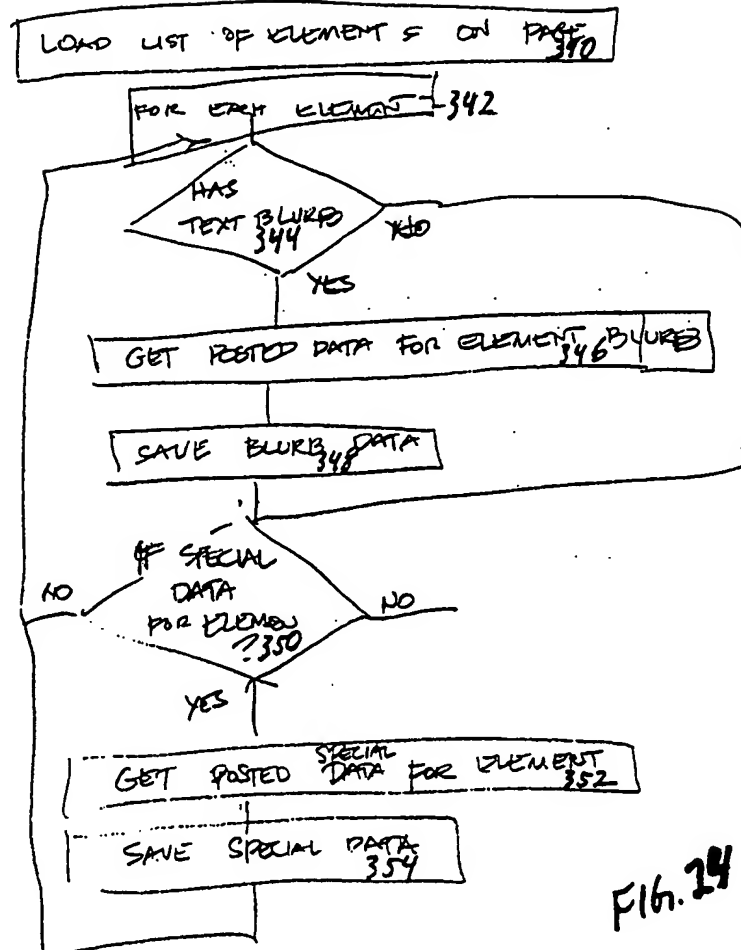 LOAD LIST OF ELEMENTS ON PAGE
340
FOR EACH ELEMENT 342
HAS
TEXT BLURB
344
NO
YES
GET POSTED DATA FOR ELEMENT BLURB
346
SAVE BLURB DATA
348
IF SPECIAL
DATA
FOR ELEMEN
?350
NO
NO
YES
GET POSTED SPECIAL DATA FOR ELEMENT
352
SAVE SPECIAL DATA
354
FIG. 24